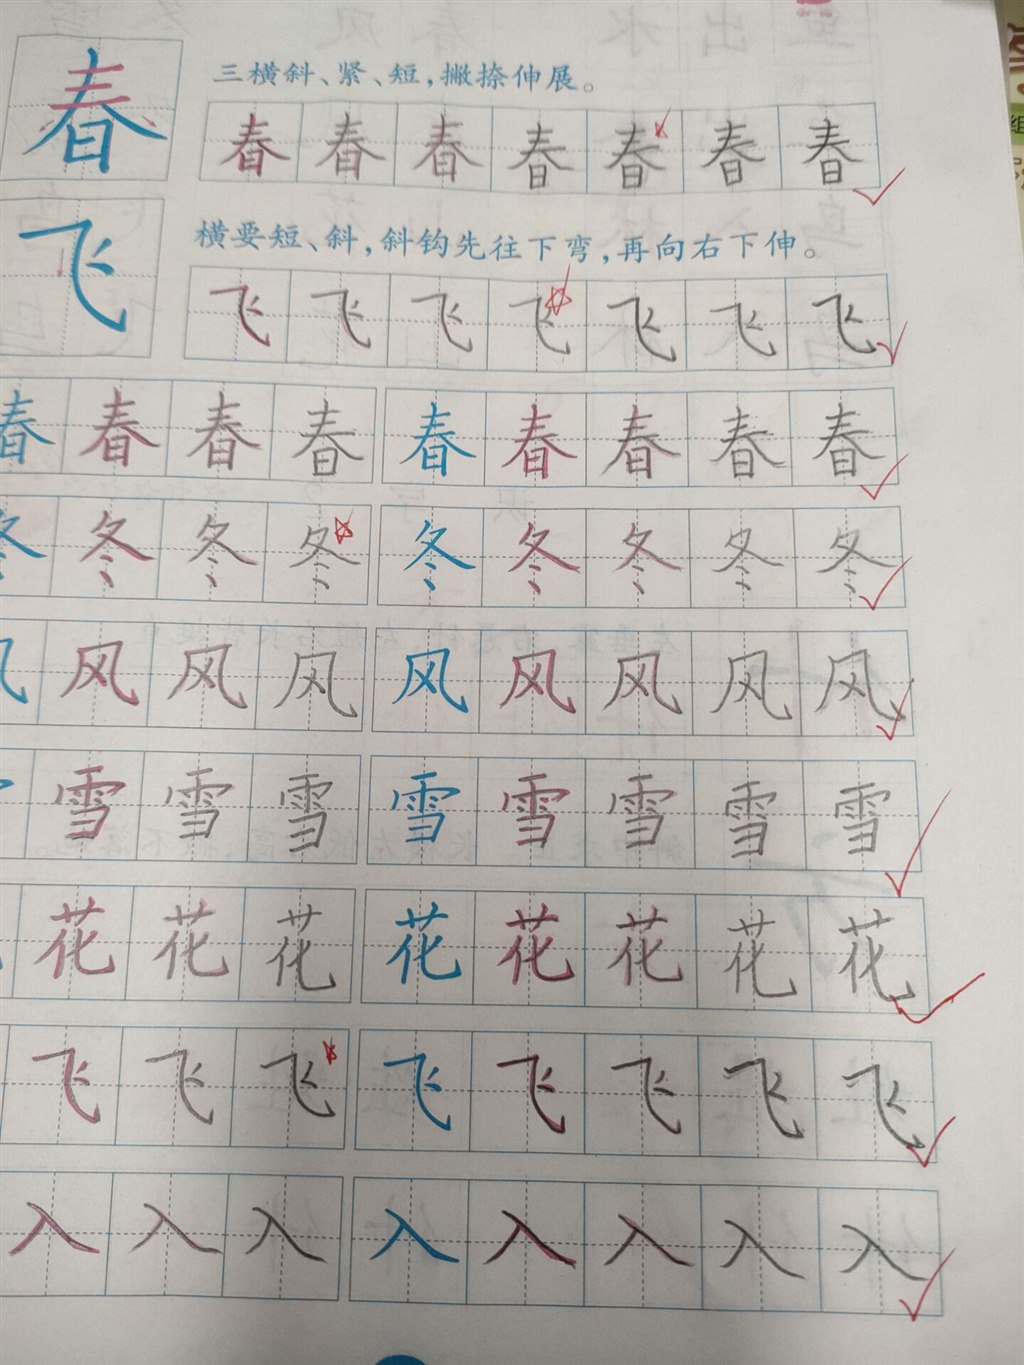 春 三横斜、紧、短，撇捺伸展。
春 春 春 春 春 春 春
飞 横要短、斜，斜钩先往下弯，再向右下伸。
飞 飞 飞 飞 飞 飞 飞
春 春 春 春 春 春 春 春 春
冬 冬 冬 冬 冬 冬 冬 冬 冬
风 风 风 风 风 风 风 风
雪 雪 雪 雪 雪 雪 雪 雪
花 花 花 花 花 花 花 花
飞 飞 飞 飞 飞 飞 飞 飞
入 入 入 入 入 入 入 入